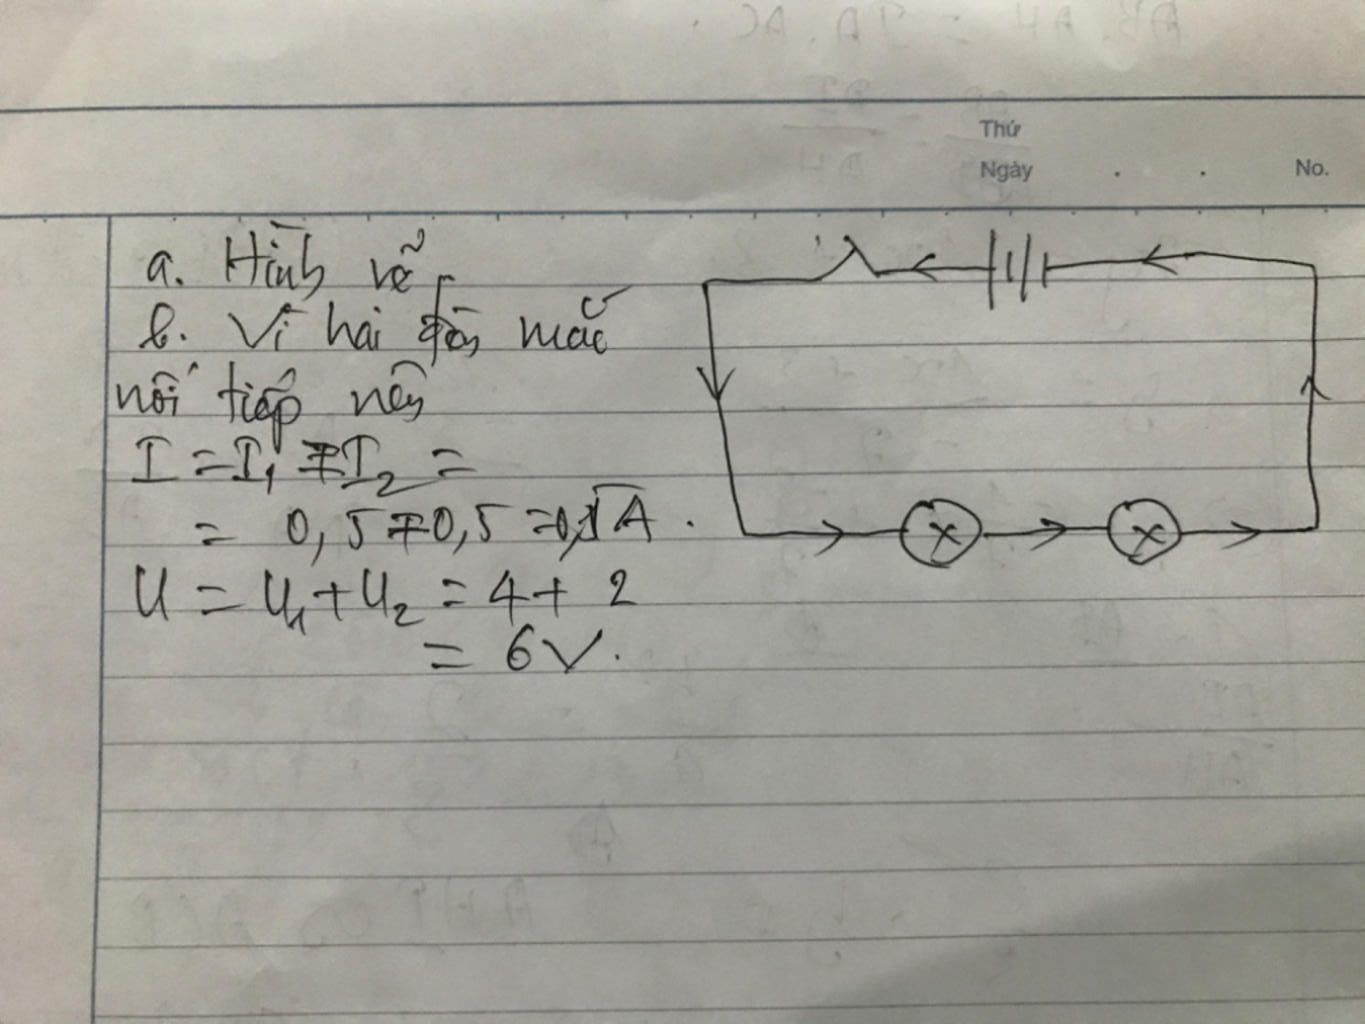 Thứ
Ngày . . No.
a. Hình vẽ
b. Vì hai đèn mắc
nối tiếp nên
I = I₁ = I₂ =
= 0,5 = 0,5 = A.
U = U₁ + U₂ = 4 + 2
= 6V.